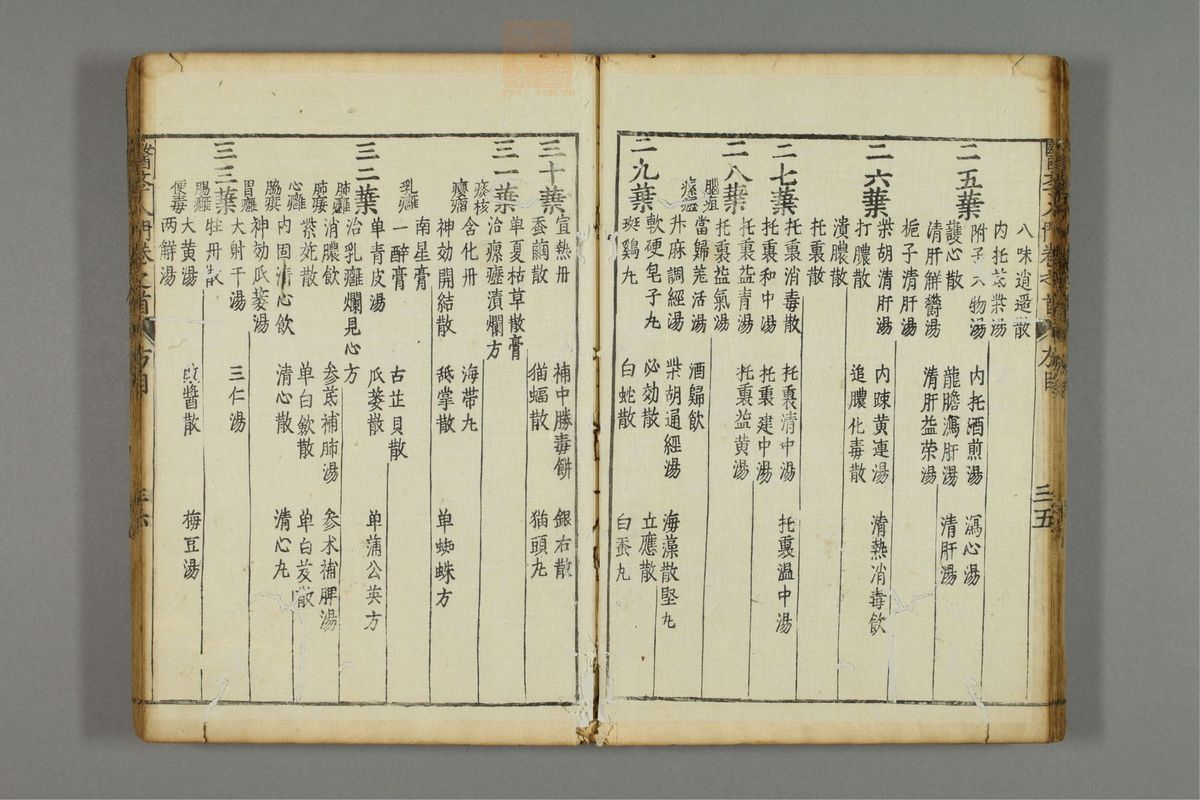 八味逍遥散
内托芪柴湯
二五葉
附子六物湯 内托酒煎湯 瀉心湯
護心散 龍膽瀉肝湯 清肝湯
清肝觧鬱湯 清肝益荣湯
梔子清肝湯
二六葉
柴胡清肝湯 内疎黄連湯 清熱消毒飲
打膿散 追膿化毒散
潰膿散
托裏散
二七葉
托裏消毒散 托裏清中湯 托裏温中湯
托裏和中湯 托裏建中湯
二八葉
托裏益青湯 托裏益黄湯
托裏益氣湯
腦疽 當歸羌活湯 酒歸飲
瘰癧 升麻調經湯 柴胡通經湯 海藻散堅丸
二九葉
軟硬皂子丸 必効散 立應散
斑鷄丸 白蛇散 白蚕丸
三十葉
宣熱丹 補中勝毒餅 銀右散
蚕繭散 猫蝠散 猫頭丸
三一葉
单夏枯草散膏
治瘰癧潰爛方
痰核 含化丹 海帶丸
癭瘤 神効開結散 䑛掌散 单蜘蛛方
南星膏
乳癰 一醉膏 古芷貝散
三二葉
单青皮湯 瓜蔞散 单蒲公英方
治乳癰爛見心方
肺癰 消膿飲 参芪補肺湯 参术補脾湯
肺痿 紫菀散 单白歛散 单白芨散
心癰 内固清心飲 清心散 清心丸
神効瓜蔞湯
胃癰 大射干湯 三仁湯
三三葉
牡丹散
腸癰 大黄湯 梅豆湯
便毒 兩觧湯